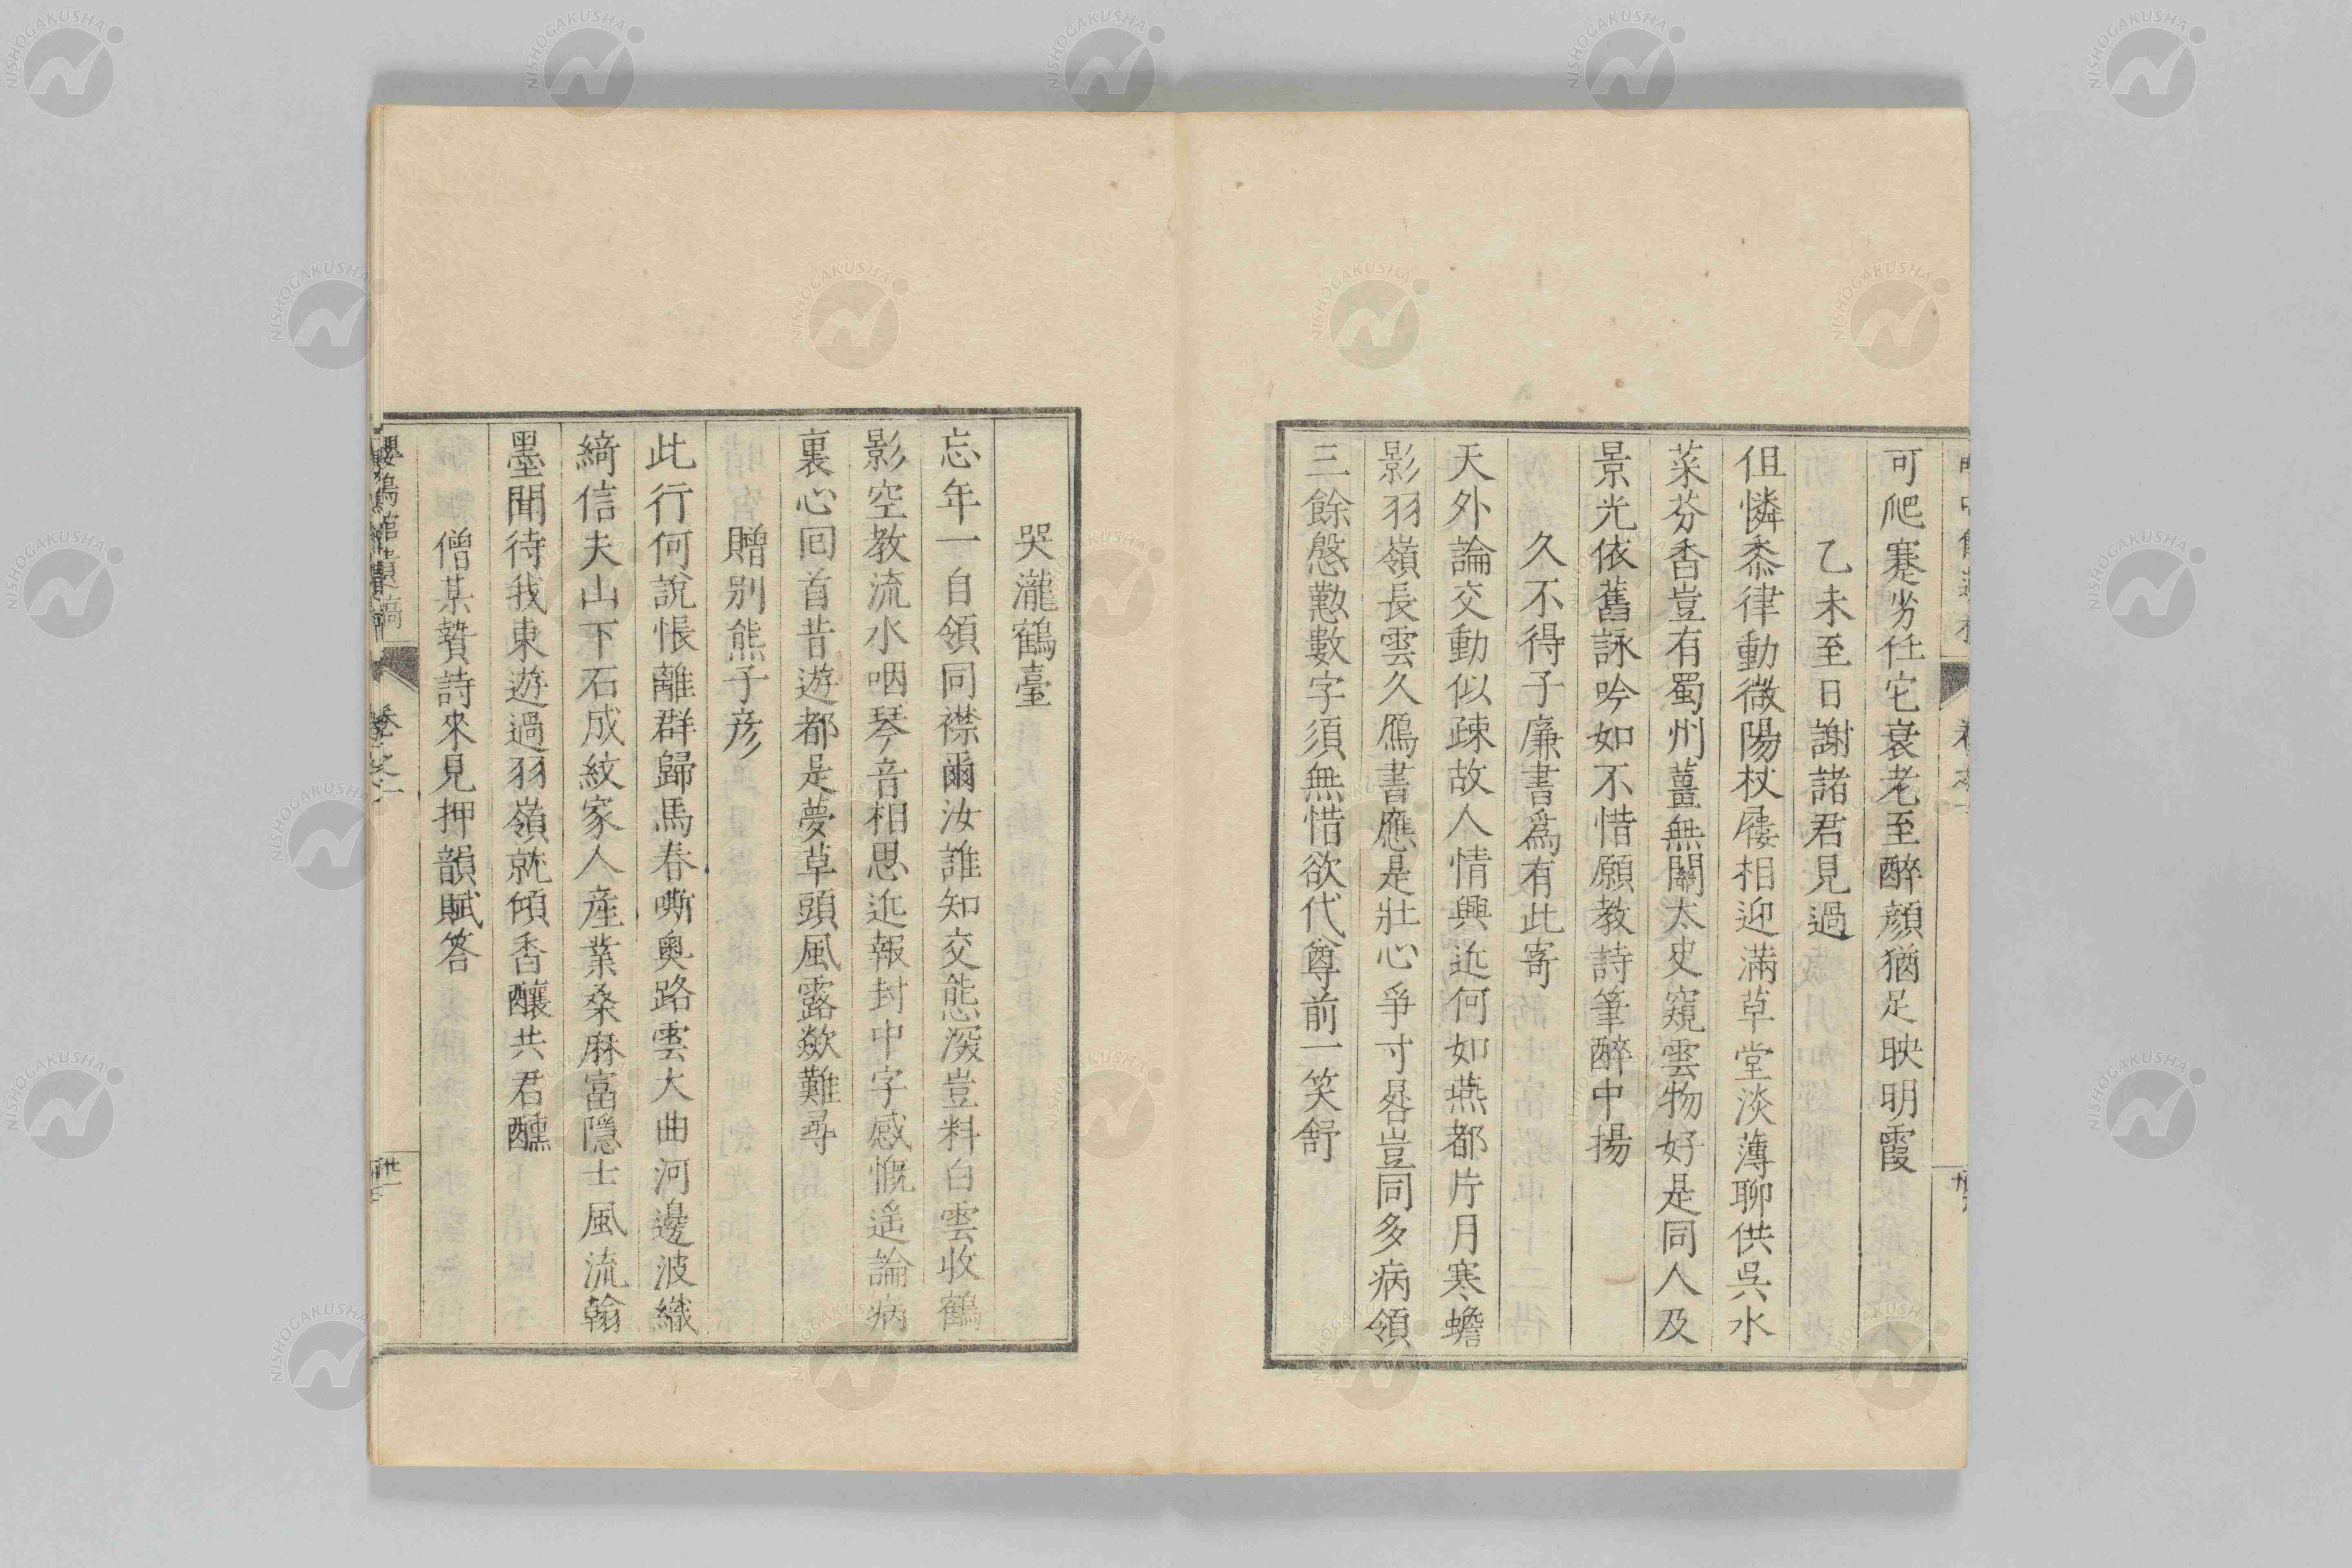 可爬蹇劣任它衰老至醉顏猶足映明霞
乙未至日謝諸君見過
但憐黍律動微陽杖屨相迎滿草堂淡薄聊供吳水
菜芬香豈有蜀州薑無關太史窺雲物好是同人及
景光依舊詠吟如不惜願教詩筆醉中揚
久不得子廉書爲有此寄
天外論交動似疎故人情興近何如燕都片月寒蟾
影羽嶺長雲久鴈書應是壯心爭寸晷豈同多病領
三餘慇懃數字須無惜欲代尊前一笑舒
哭瀧鶴臺
忘年一自領同襟爾汝誰知交態深豈料白雲收鶴
影空教流水咽琴音相思近報封中字感慨遥論病
裏心回首昔遊都是夢草頭風露歘難尋
贈別熊子彦
此行何說悵離群歸馬春嘶奧路雲大曲河邊波織
綺信夫山下石成紋家人産業桑麻富隱士風流翰
墨聞待我東遊過羽嶺就傾香釀共君醺
僧某贄詩來見押韻賦答
嚶鳴館遺稿 卷之一
NISHOGAKUSHA